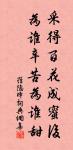 采得百花成蜜後
為誰辛苦為誰甜